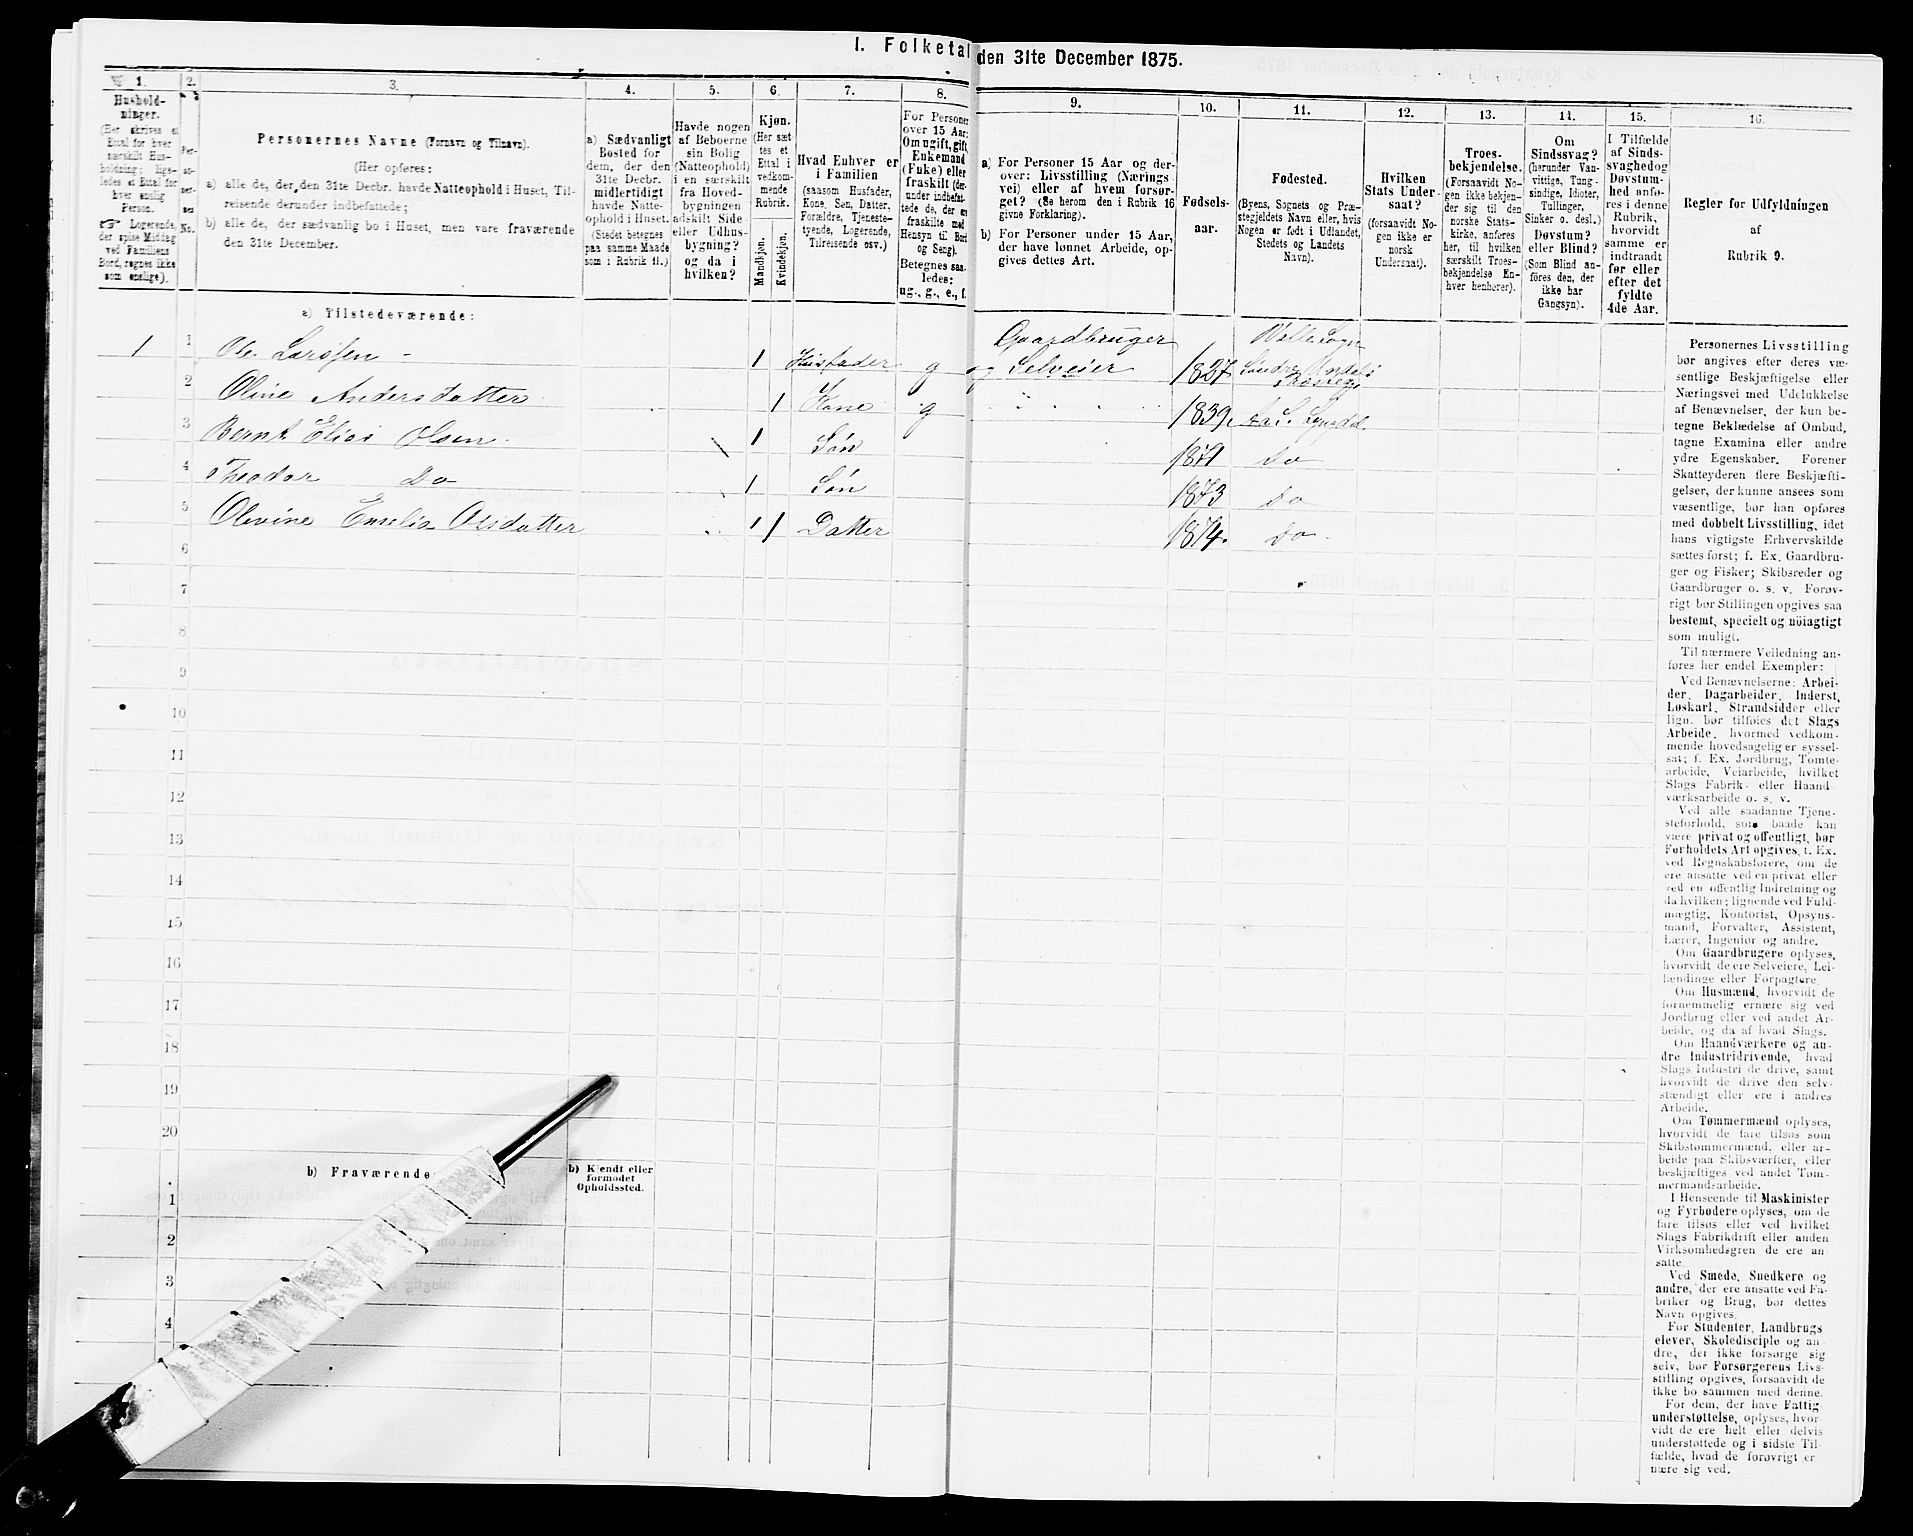 I. Folketal den 31te December 1875.
1.
Hushold-
ninger.
(Her skrives et
Ettal for hver
særskilt Hus-
holdning; lige-
ledes et Ettal for
hver enslig
Person.
☞ Logerende,
der spise Middag
ved Familiens
Bord, regnes ikke
som enslige).
2.
Per-
so-
ner-
nes
No.
3.
Personernes Navne (Fornavn og Tilnavn).
(Her opføres:
a) alle de, der den 31te Decbr. havde Natteophold i Huset, Til-
reisende derunder indbefattede;
b) alle de, der sædvanlig bo i Huset, men vare fraværende
den 31te December.
4.
a) Sædvanligt
Bosted for
dem, der den
31te Decbr.
midlertidigt
havde Natte-
ophold i Huset.
(Stedet betegnes
paa samme Maade
som i Rubrik 11.)
5.
Havde nogen
af Beboerne
sin Bolig
(Natteophold)
i en særskilt
fra Hoved-
bygningen
adskilt Side-
eller Udhus-
bygning?
og da i
hvilken?
6.
Kjøn.
(Her sæt-
tes et
Ettal i
vedkom-
mende
Rubrik.
Mandkjøn.
Kvindekjøn.
7.
Hvad Enhver er
i Familien
(saasom Husfader,
Kone, Søn, Datter,
Forældre, Tjeneste-
tyende, Logerende,
Tilreisende osv.)
8.
For Personer
over 15 Aar:
Om ugift, gift,
Enkemand
(Enke) eller
fraskilt (der-
under indbefat-
tede de, der ere
fraskilte med
Hensyn til Bord
og Seng).
Betegnes saa-
ledes:
ug., g., e., f.
9.
a) For Personer 15 Aar og der-
over: Livsstilling (Nærings-
vei) eller af hvem forsør-
get? (Se herom den i Rubrik 16
givne Forklaring).
b) For Personer under 15 Aar,
der have lønnet Arbeide, op-
gives dettes Art.
10.
Fødsels-
aar.
11.
Fødested.
(Byens, Sognets og Præ-
stegjeldets Navn eller, hvis
Nogen er født i Udlandet,
Stedets og Landets
Navn).
12.
Hvilken
Stats Under-
saat?
(forsaavidt No-
gen ikke er
norsk
Undersaat).
13.
Troes-
bekjendelse.
(Forsaavidt No-
gen ikke bekjen-
der sig til den
norske Stats-
kirke, anføres
her, til hvilken
særskilt Troes-
bekjendelse En-
hver henhører).
14.
Om
Sindssvag?
(herunder Van-
vittige, Tung-
sindige, Idioter,
Tullinger,
Sinker o. desl.)
Døvstum?
eller Blind?
(Som Blind an-
føres den, der
ikke har
Gangsyn).
15.
I Tilfælde
af Sinds-
svaghed og
Døvstum-
hed anfø-
res i denne
Rubrik,
hvorvidt
samme er
indtraadt
før eller
efter det
fyldte
4de Aar.
16.
Regler for Udfyldningen
af
Rubrik 9.
a) Tilstedeværende:
1 1 Ole Larssen 1 Husfader g Gaardbruger og Selveier 1827 Valle Sogn
Søndre Undals
Præstegj
2 Oline Andersdatter 1 Kone g 1839. Aa S. Lyngdal
3 Bernt Elias Olsen 1 Søn 1871 Do
4 Theodor Do 1 Søn 1873 Do
5 Olevine Emelia Olsdatter 1 1 Datter 1874. Do
6
7
8
9
10
11
12
13
14
15
16
17
18
19
20
b) Fraværende
b) Kjendt eller
formodet
Opholdssted.
1
2
3
4
Personernes Livsstilling
bør angives efter deres væ-
sentlige Beskjæftigelse eller
Næringsvei med Udelukkelse
af Benævnelser, der kun be-
tegne Beklædelse af Ombud,
tagne Examina eller andre
ydre Egenskaber. Forener
Skatteyderen flere Beskjæfti-
gelser, der kunne ansees som
væsentlige, bør han opføres
med dobbelt Livsstilling, idet
hans vigtigste Erhvervskilde
sættes først; f. Ex. Gaardbru-
ger og Fisker; Skibsreder og
Gaardbruger o. s. v. Forøv-
rigt bør Stillingen opgives saa
bestemt, specielt og nöiagtigt
som muligt.
Til nærmere Veiledning an-
føres her endel Exempler:
Ved Benævnelserne: Arbei-
der, Dagarbeider, Inderst,
Løskarl, Strandsidder eller
lign. bør tilføies det Slags
Arbeide, hvormed vedkom-
mende hovedsagelig er syssel-
sat; f. Ex. Jordbrug, Tomte-
arbeide, Veiarbeide, hvilket
Slags Fabrik- eller Haand-
værksarbeide o. s. v.
Ved alle saadanne Tjene-
steforhold, som baade kan
være privat og offentligt, bør
Forholdets Art opgives, f. Ex.
ved Regnskabsførere, om de
ere ansatte ved en privat eller
ved en offentlig Indretning og
da hvilken; lignende ved Fuld-
mægtig, Kontorist, Opsyns-
mand, Forvalter, Assistent,
Lærer, Ingeniør og andre.
Om Gaardbrugere oplyses,
hvorvidt de ere Selveiere, Lei-
lændinge eller Forpagtere.
Om Husmænd, hvorvidt de
fornemmelig ernære sig ved
Jordbrug eller ved andet Ar-
beide, og da af hvad Slags.
Om Haandværkere og an-
dre Industridrivende, hvad
Slags Industri de drive, samt
hvorvidt de drive den selv-
stændigt eller ere i andres
Arbeide.
Om Tømmermænd oplyses,
hvorvidt de fare tilsøs som
Skibstømmermænd, eller ar-
beide paa Skibsværfter, eller
beskjæftiges ved andet Tøm-
mermandsarbeide.
I Henseende til Maskinister
og Fyrbødere oplyses, om de
fare tilsøs eller ved hvilket
Slags Fabrikdrift eller anden
Virksomhedsgren de ere an-
satte.
Ved Smede, Snedkere og
andre, der ere ansatte ved Fa-
briker og Brug, bør dettes
Navn opgives.
For Studenter, Landbrugs-
elever, Skoledisciple og an-
dre, der ikke forsørge sig
selv, bør Forsørgerens Livs-
stilling opgives, forsaavidt de
ikke bo sammen med denne.
For dem, der have Fattig-
understøttelse, oplyses, hvor-
vidt de ere helt eller delvis
understøttede og i sidste Til-
fælde, hvad de forøvrigt er-
nære sig ved.